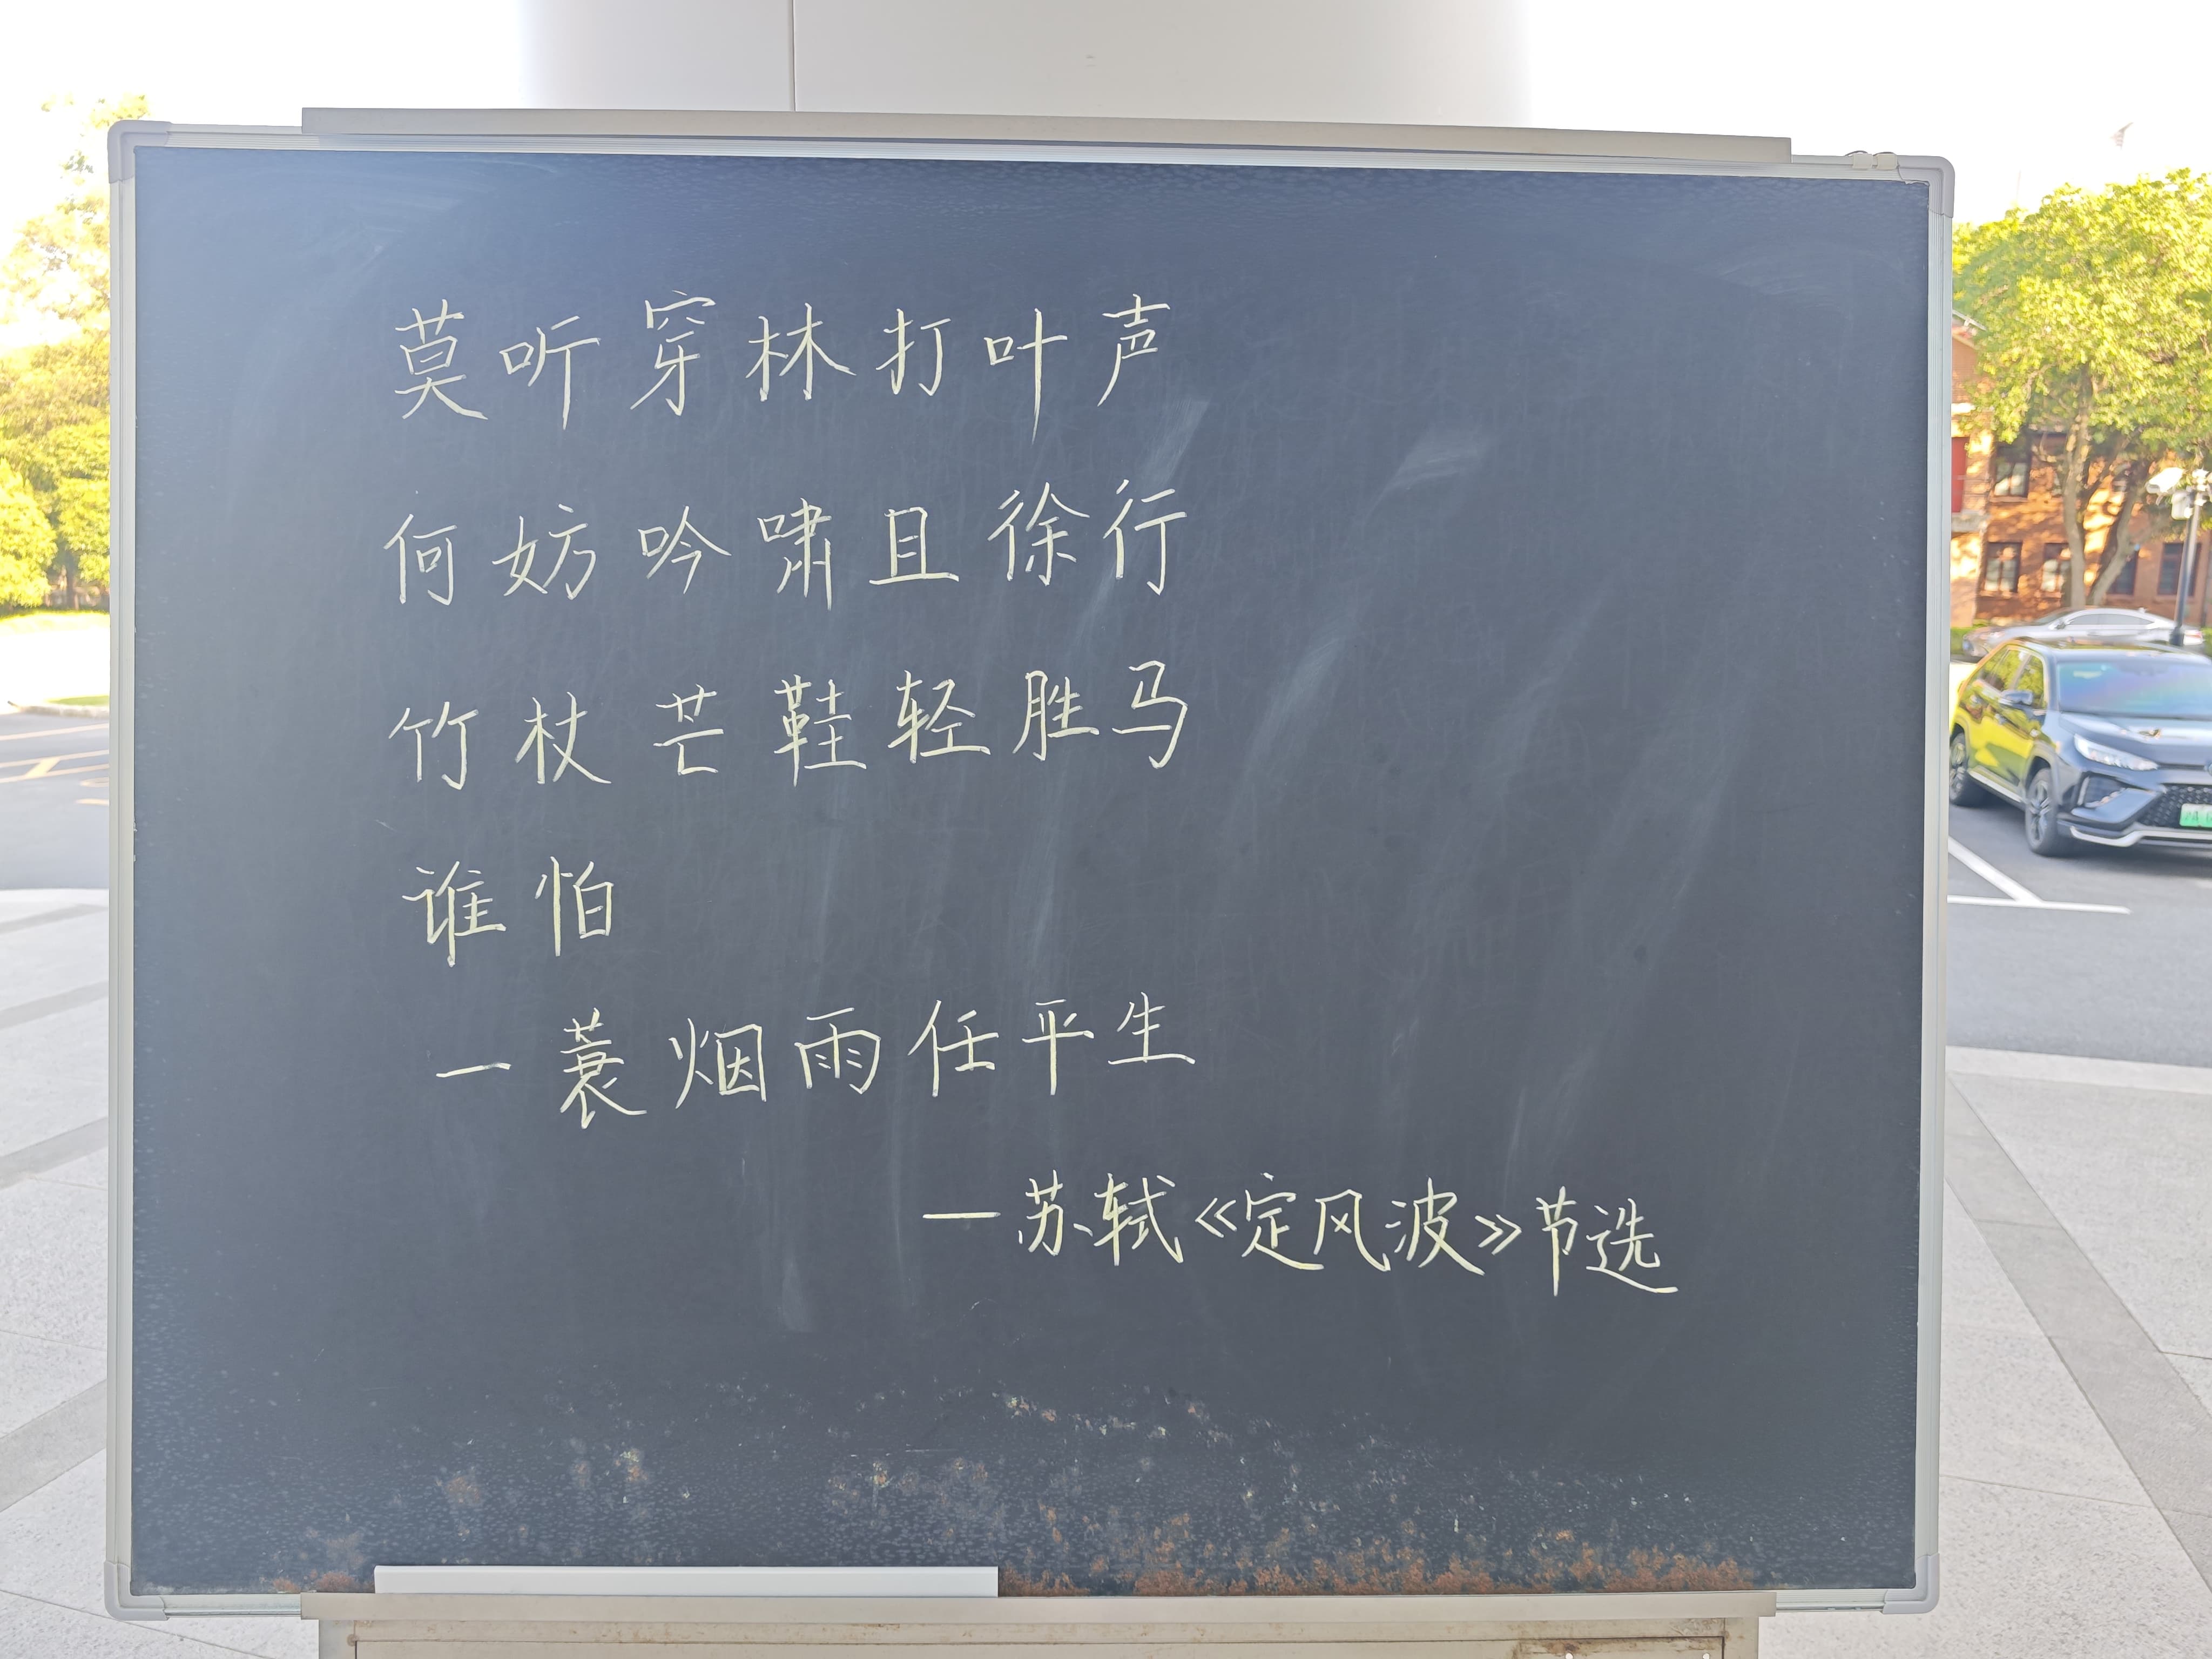 莫听穿林打叶声
何妨吟啸且徐行
竹杖芒鞋轻胜马
谁怕
一蓑烟雨任平生
—苏轼《定风波》节选